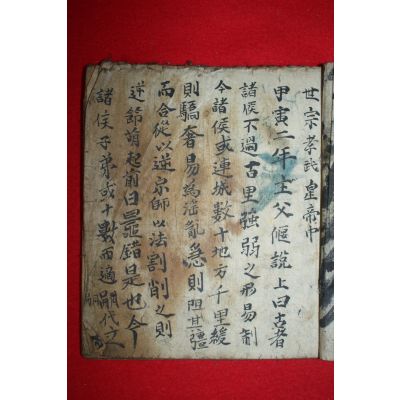 世宗孝武皇帝中
甲寅二年主父偃說上曰古者
諸侯不過百里強弱之形易制
今諸侯或連城數十地方千里緩
則驕奢易爲淫亂急則阻其彊
而合從以逆京師以法割削之則
逆節萌起前日鼂錯是也今
諸侯子弟或十數而適嗣代立